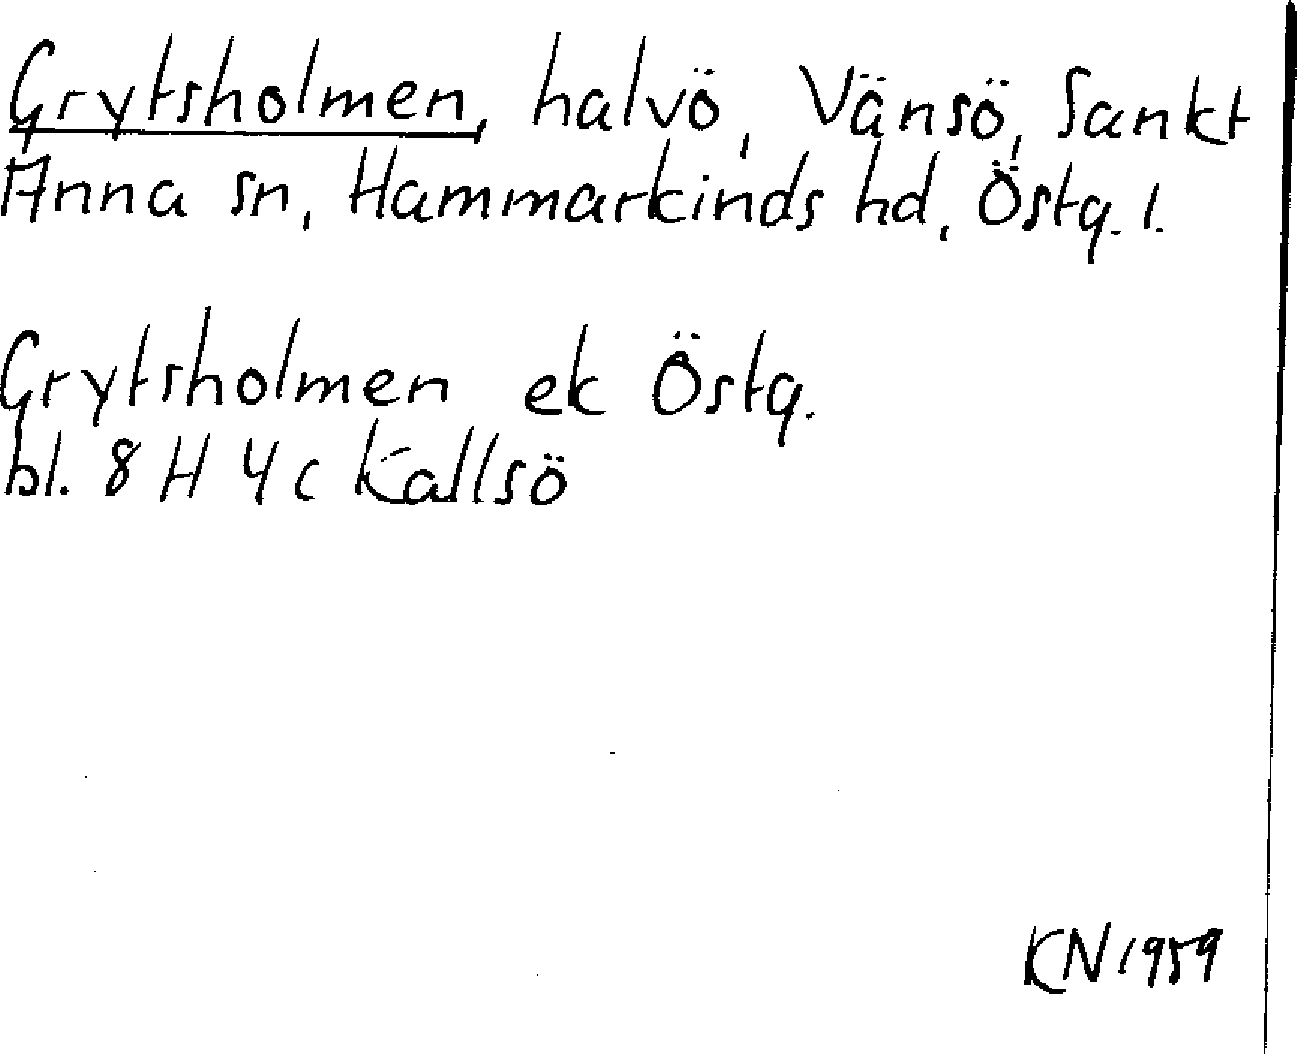 Grytsholmen, halvö, Vänsö, Sankt
Anna sn, Hammarkinds hd, Östg. l.
Grytsholmen ek Östg.
bl. 8 H 4c Kallsö
KN 1959